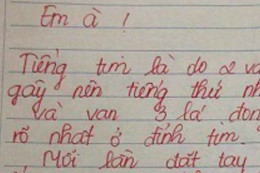 Em à !
Tiếng tim là do 2 va
gây nên tiếng thứ nh
và van 3 lá đon
rõ nhat ở đỉnh tim.
Mỗi lần đặt tay